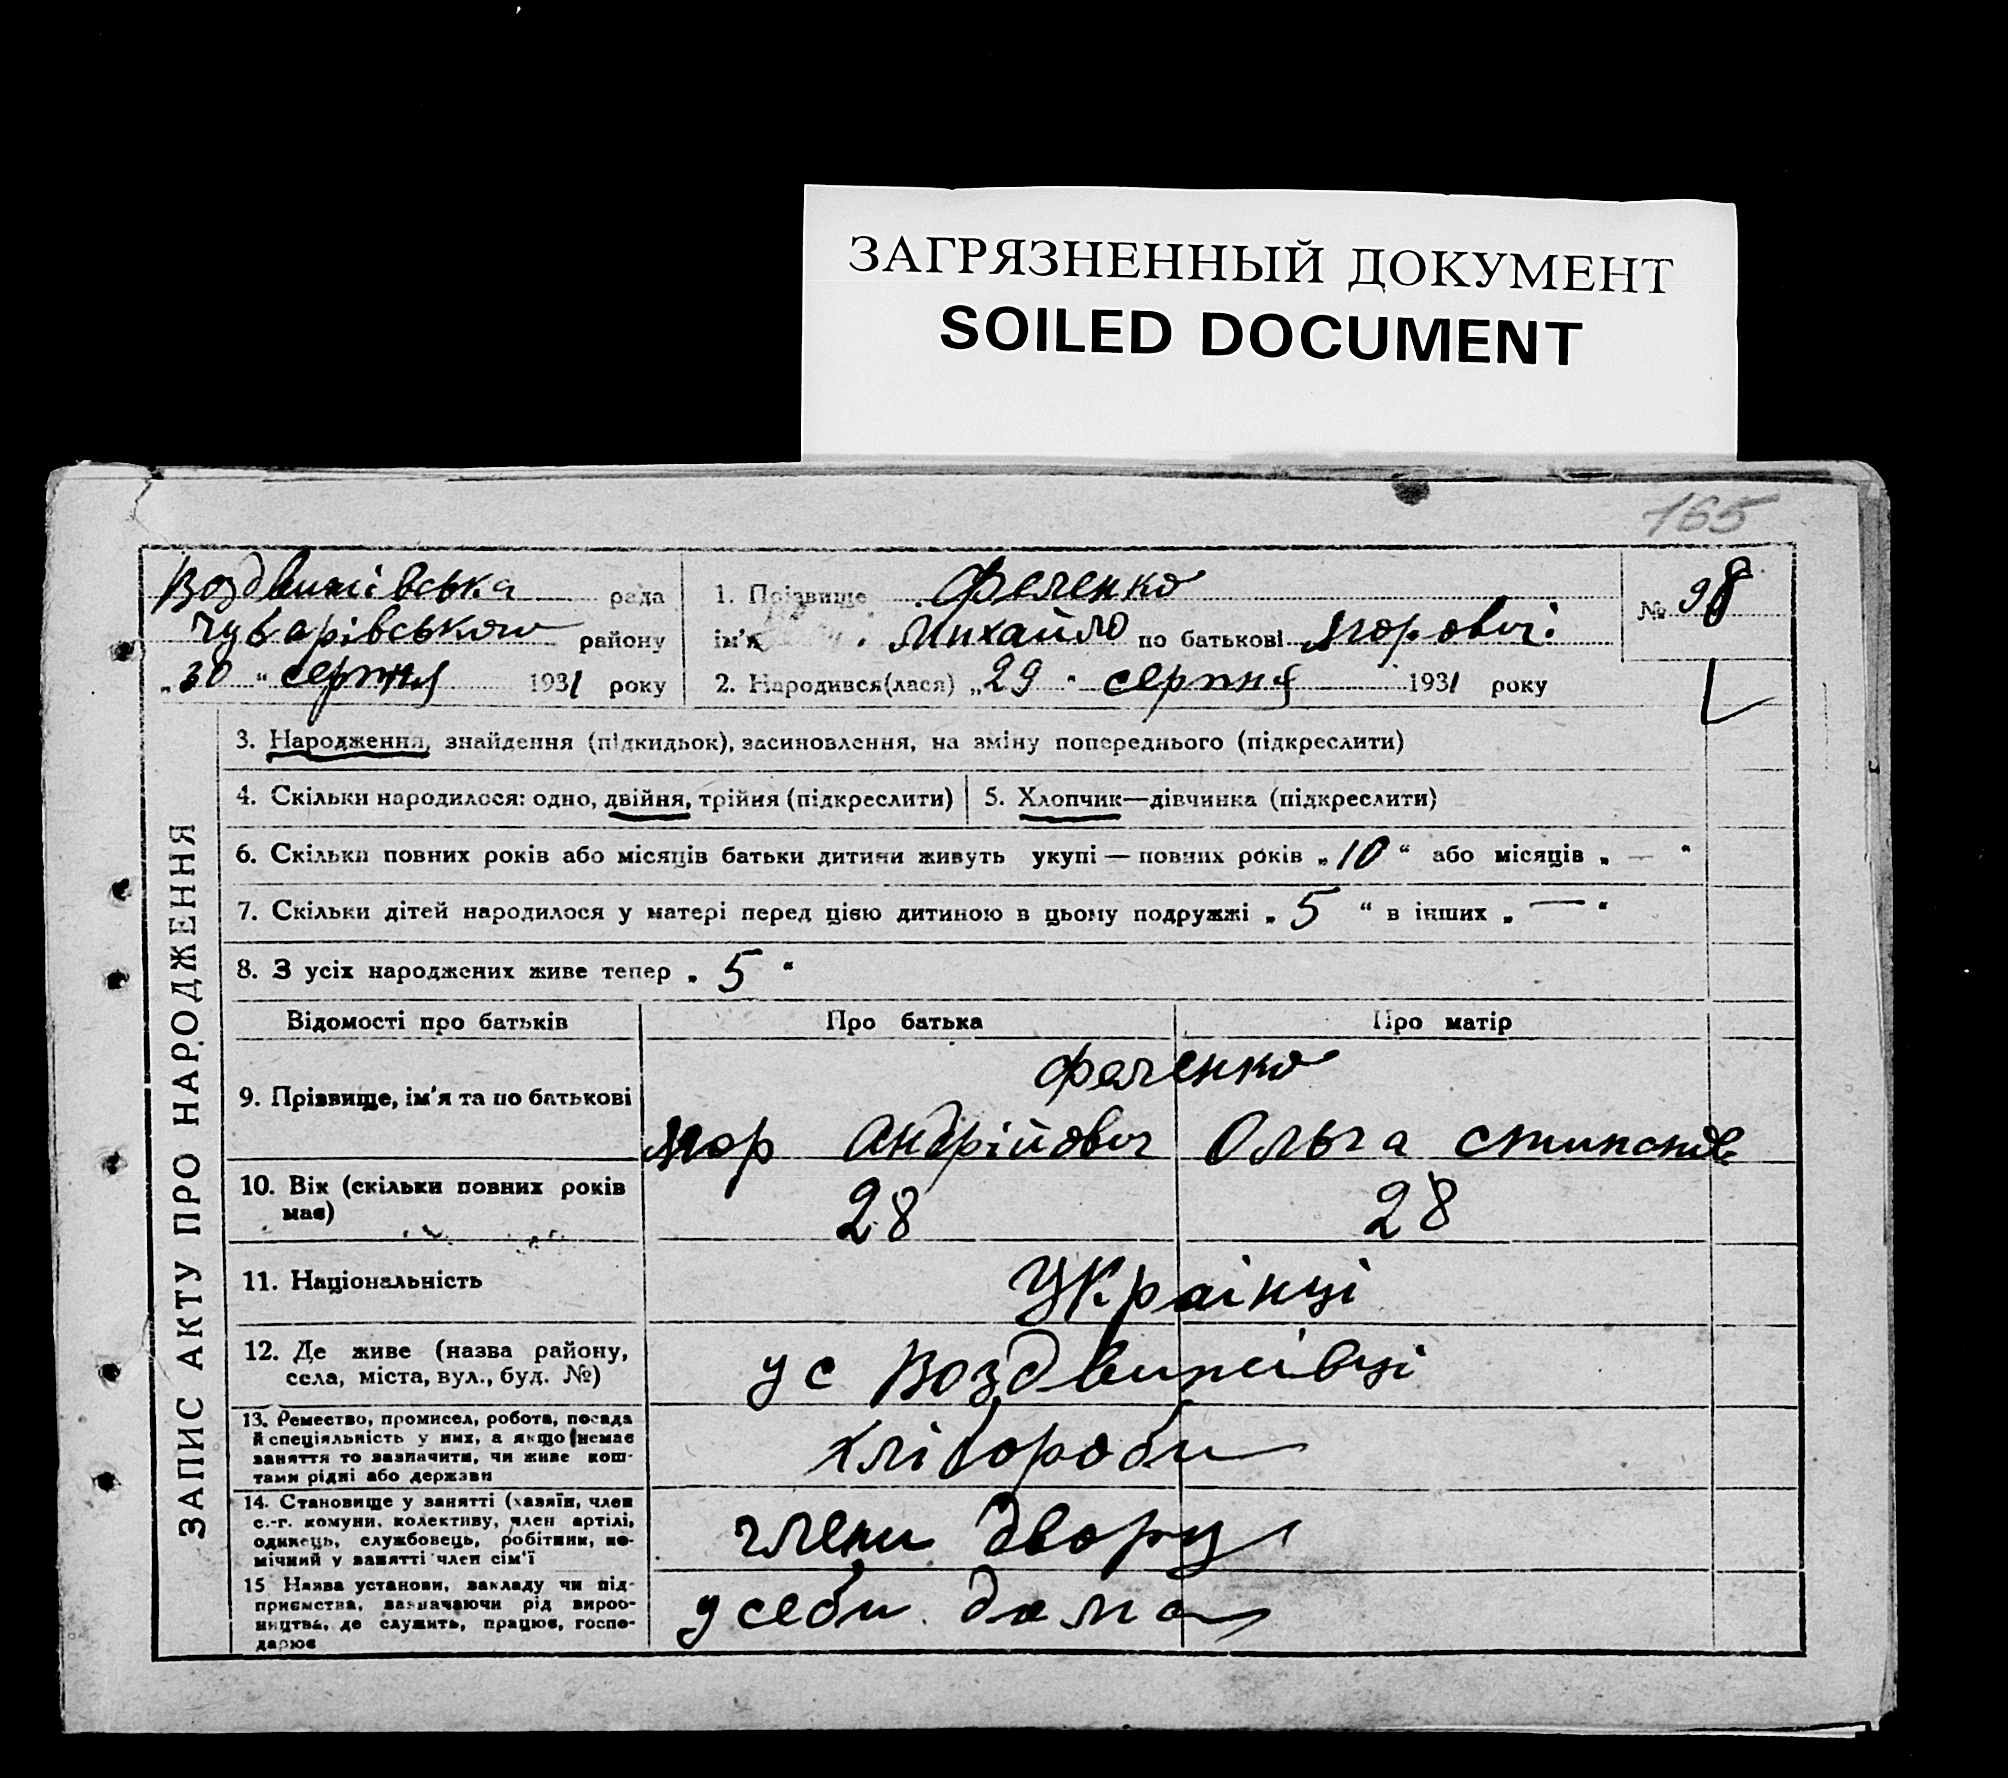 ЗАГРЯЗНЕННЫЙ ДОКУМЕНТ
SOILED DOCUMENT
165
Воздвижівська рада
Чубарівського району
„30“ серпня 1931 року
1. Прізвище Фесенко
ім'я Михайло по батькові
2. Народився(лася) „29 серпня 1931 року
№ 98
ЗАПИС АКТУ ПРО НАРОДЖЕННЯ
3. Народження, знайдення (підкидьок), засиновлення, на зміну попереднього (підкреслити)
4. Скільки народилося: одно, двійня, трійня (підкреслити)
5. Хлопчик—дівчинка (підкреслити)
6. Скільки повних років або місяців батьки дитини живуть укупі — повних років „10“ або місяців „ — “
7. Скільки дітей народилося у матері перед цією дитиною в цьому подружжі „5“ в інших „ — “
8. З усіх народжених живе тепер „5“
Відомості про батьків Про батька Про матір
Фесенко
9. Прізвище, ім'я та по батькові
Андрійович Ольга
10. Вік (скільки повних років 28 28
має)
11. Національність Українці
12. Де живе (назва району, у с Воздвижівці
села, міста, вул., буд. №)
13. Ремество, промисел, робота, посада
й спеціяльність у них, а якщо немає хлібороби
заняття то зазначити, чи живе кош-
тами рідні або держави
14. Становище у занятті (хазяїн, член
с.-г. комуни, колективу, член артілі, члени двору
одинець, службовець, робітник, по-
мічний у занятті член сім'ї
15 Назва установи, закладу чи під-
приємства, зазначаючи рід вироб- у себи дома
ництва, де служить, працює, госпо-
дарює